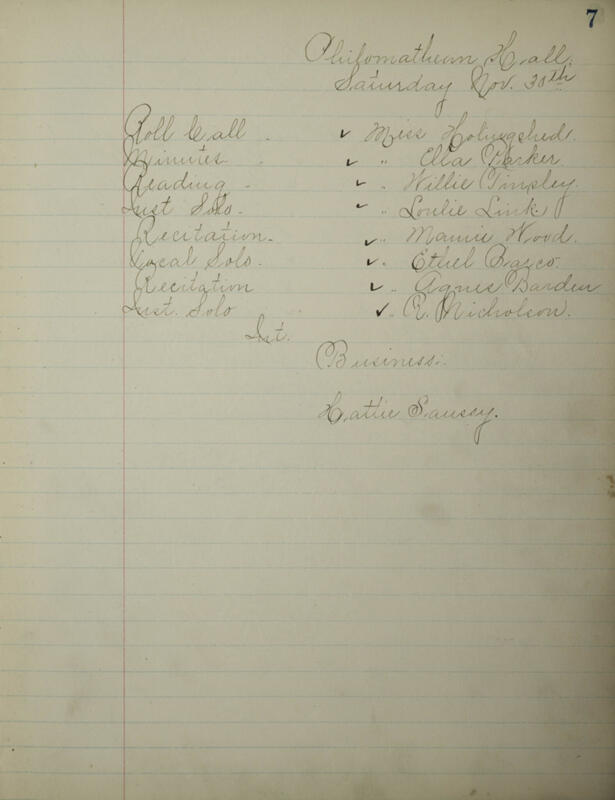 7
Philomathean Hall.
Saturday Nov. 30th
Roll Call. ✓ Miss Holingshed.
Minutes. ✓ " Ella Parker
Reading. ✓ " Willie Tinsley.
Inst Solo. ✓ " Loulie Link.
Recitation. ✓ " Mamie Wood.
Vocal Solo. ✓ " Ethel
Recitation ✓ " Agnes Barden
Inst. Solo ✓ " R. Nicholson.
Int.
Business:
Hattie Saussy.